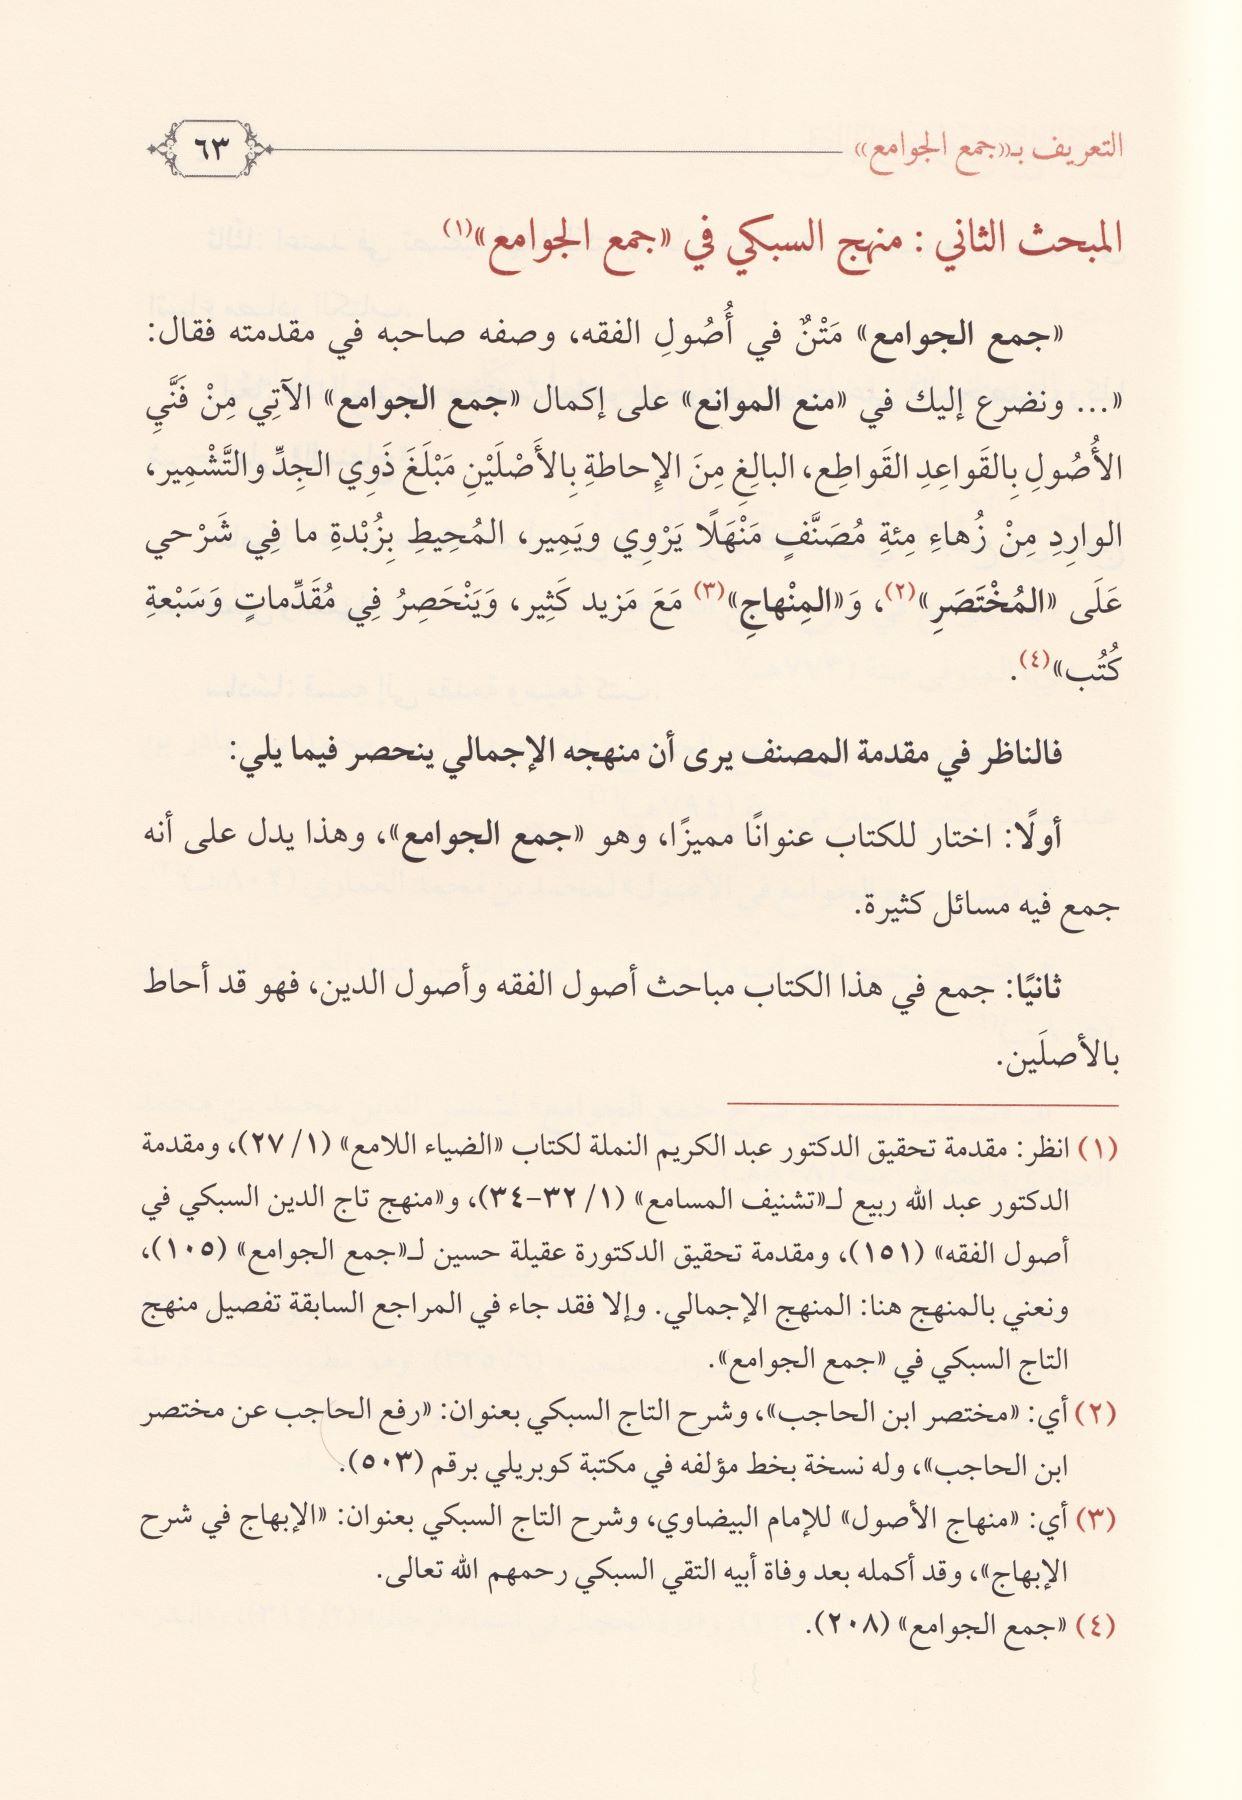 التعريف بـ«جمع الجوامع»
٦٣
المبحث الثاني : منهج السبكي في «جمع الجوامع»(١)
«جمع الجوامع» مَتْنٌ في أُصُولِ الفقه، وصفه صاحبه في مقدمته فقال:
«... ونضرع إليك في «منع الموانع» على إكمال «جمع الجوامع» الآتِي مِنْ فَنَّيِ
الأُصُولِ بِالقَواعِدِ القَواطِع، البالِغِ مِنَ الإِحاطةِ بِالأَصْلَيْنِ مَبْلَغَ ذَوِي الجِدِّ والتَّشْمِير،
الوارِدِ مِنْ زُهاءِ مِئةِ مُصَنَّفٍ مَنْهَلًا يَرْوِي ويَمِير، المُحِيطِ بِزُبْدةِ ما فِي شَرْحي
عَلَى «المُخْتَصَرِ»(٢)، وَ«المِنْهاجِ»(٣) مَعَ مَزِيد كَثِير، وَيَنْحَصِرُ فِي مُقَدِّماتٍ وَسَبْعةِ
كُتُب»(٤).
فالناظر في مقدمة المصنف يرى أن منهجه الإجمالي ينحصر فيما يلي:
أولًا: اختار للكتاب عنوانًا مميزًا، وهو «جمع الجوامع»، وهذا يدل على أنه
جمع فيه مسائل كثيرة.
ثانيًا: جمع في هذا الكتاب مباحث أصول الفقه وأصول الدين، فهو قد أحاط
بالأصلَين.
(١) انظر: مقدمة تحقيق الدكتور عبد الكريم النملة لكتاب «الضياء اللامع» (١/ ٢٧)، ومقدمة
الدكتور عبد الله ربيع لـ«تشنيف المسامع» (١/ ٣٢-٣٤)، و«منهج تاج الدين السبكي في
أصول الفقه» (١٥١)، ومقدمة تحقيق الدكتورة عقيلة حسين لـ«جمع الجوامع» (١٠٥)،
ونعني بالمنهج هنا: المنهج الإجمالي. وإلا فقد جاء في المراجع السابقة تفصيل منهج
التاج السبكي في «جمع الجوامع».
(٢) أي: «مختصر ابن الحاجب»، وشرح التاج السبكي بعنوان: «رفع الحاجب عن مختصر
ابن الحاجب»، وله نسخة بخط مؤلفه في مكتبة كوبريلي برقم (٥٠٣).
(٣) أي: «منهاج الأصول» للإمام البيضاوي، وشرح التاج السبكي بعنوان: «الإبهاج في شرح
الإبهاج»، وقد أكمله بعد وفاة أبيه التقي السبكي رحمهم الله تعالى.
(٤) «جمع الجوامع» (٢٠٨).